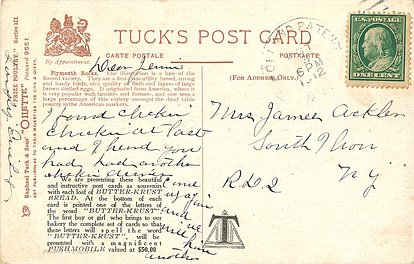 TUCK'S POST CARD
By Appointment.
CARTE POSTALE
POSTKARTE
(FOR ADDRESS ONLY.)
Raphael Tuck & Sons' "OILETTE"
"PRIZE POULTRY." Series III.
Postcard 9561
ART PUBLISHERS TO THEIR MAJESTIES THE KING & QUEEN.
Plymouth Rocks. The illustration is a hen of the
Barred variety. They are a first utility breed, strong
and hardy birds, nice quality of flesh and layers of
brown shelled eggs. It originated from America, where it
is very popular with farmers, and one sees a
large percentage of this variety amongst the dead table
poultry in the American markets.
Dear
I found chicken
at
and I heard you
had had another
chicken dinner
come
and
We are presenting these beautiful
and instructive post cards as souvenirs
with each loaf of BUTTER-KRUST
BREAD. At the bottom of each
card is printed one of the letters of
the word "BUTTER-KRUST".
The first boy or girl who brings to our
bakery the complete set of cards so that
these letters will spell the word
"BUTTER-KRUST", will be
presented with a magnificent
PUSHMOBILE valued at $50.00
another
T
JUN
12
ONE CENT
Mrs James
South
R.D.2
N Y